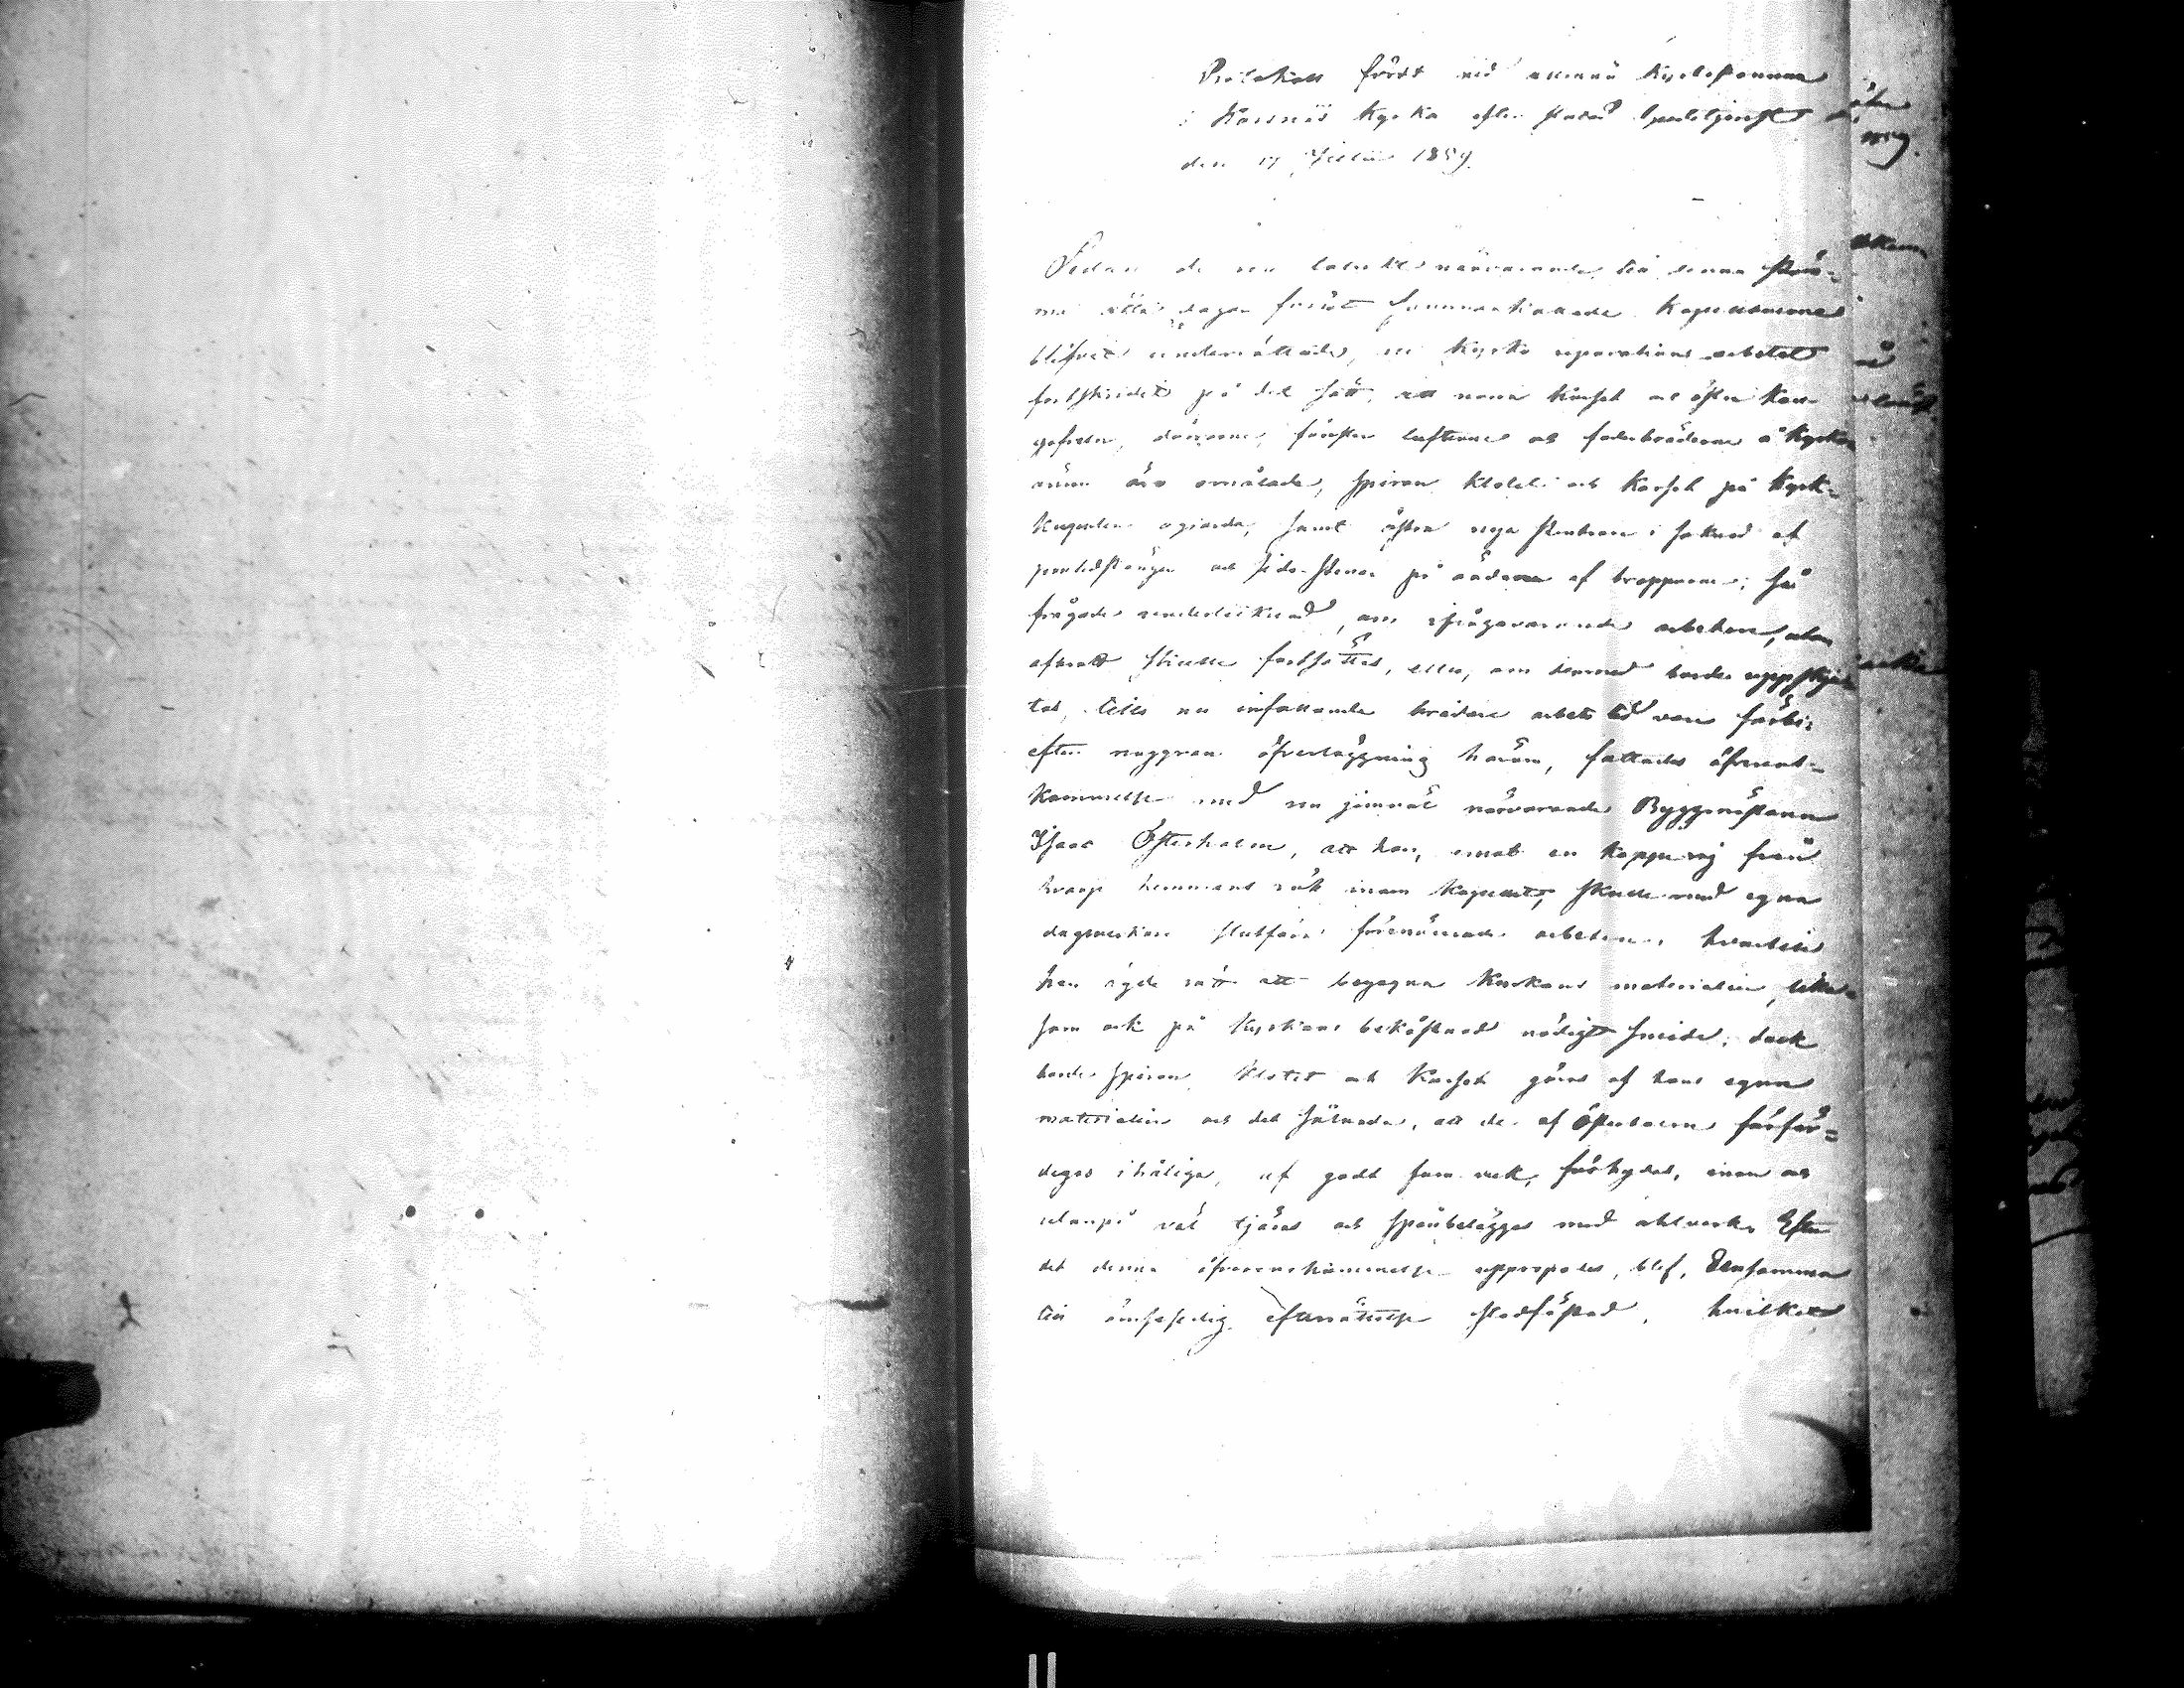 Protokoll fördt vid allmän Kyrkostämma
i Karsnäs Kyrka efter slutad Gudstjenst
den 17 Julii 1859.
Sedan de nu talrikt närvarande, till denna stäm-
ma åtta dagar förut sammankallade Kapellboerne
blifvit underrättade, att Kyrko reparations arbetet
fortskridit på det sätt, att norra korset och östra
gafveln, dörrarne, fönster lufterne och foderbräderne å Kyrkan
äro omålade, spiran klotet och korset på Kyrk-
kupolen ogjorda, samt östra nya stenbron i saknad af
och sido stenar på ändarne af trapporne; så
frågades underteknad, om ifrågavarande arbeten, utan
afbrott skulle fortsättas, eller, om dermed borde uppskju-
tas, tills nu infallande brådare arbets tid vore förbi;
efter noggran öfverläggning härom, fattades öfverens-
kommelse med en jemväl närvarande Byggmästaren
Isaac Österholm, att han, emot en kappe råg från
hvarje hemmans rök inom Kapellet, skulle med egna
dagsverkare slutföra förenämnade arbeten, hvartill
han ägde rätt att begagna Kyrkans materialier, lika-
som ock på Kyrkans bekostnad nödigt smide; dock
borde spiran, klotet och Korset göras af hans egna
materialier och det sålunda, att de af Österholm förfär-
digas ihåliga, af godt furu virke, förhydas, innan och
utanpå väl tjäras och spånbeläggas med Efter
det denna öfverenskommelse upprepades, blef, densamma
till ömsesidig efterrättelse stadfästad, hvilket